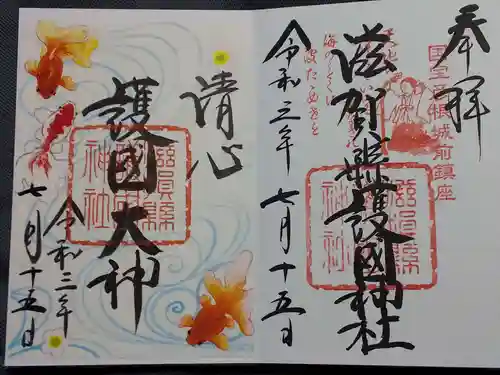 奉拝
国宝彦根城前鎮座
滋賀縣護國神社
滋賀縣
護國
神社
令和三年 七月十五日
清心
護國大神
滋賀縣
護國
神社
令和三年
七月十五日